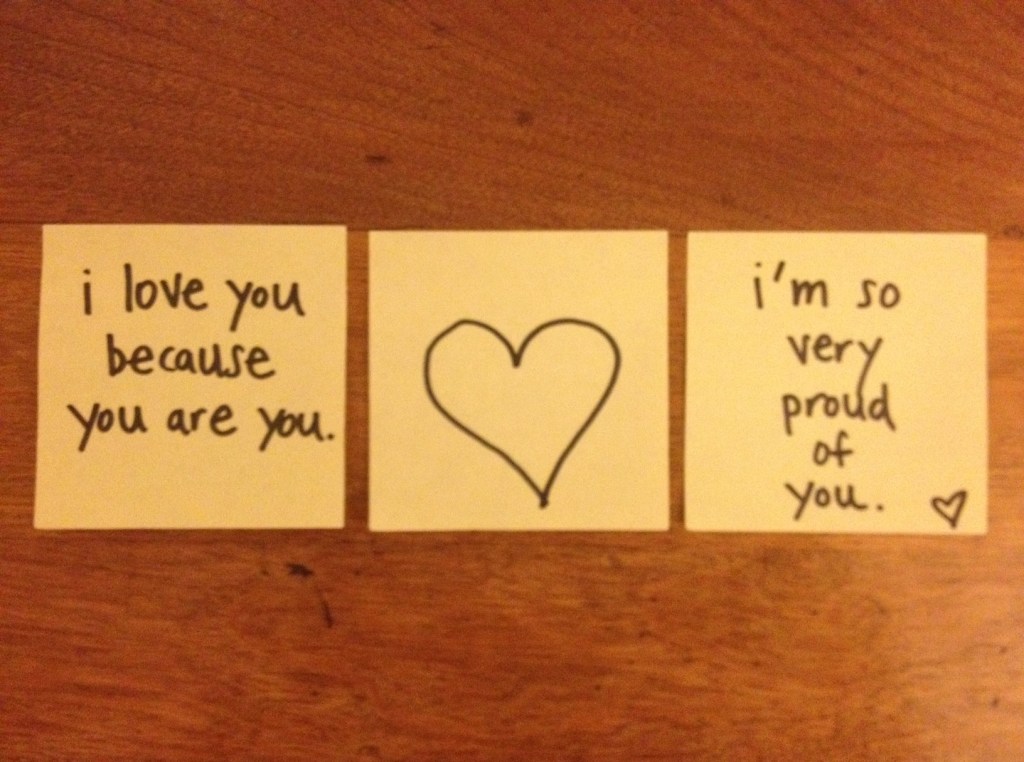 i love you
because
you are you.
i'm so
very
proud
of
you.